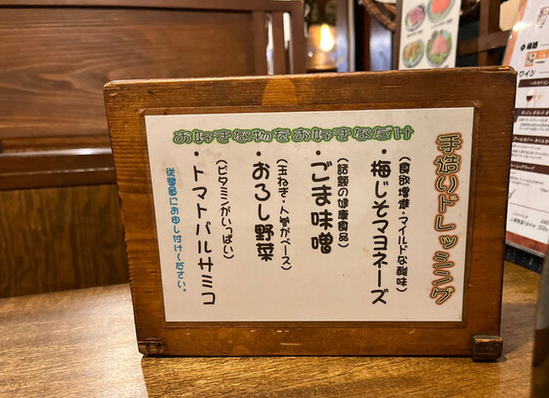 お好きな物をお好きなだけ
手造りドレッシング
(食欲増進・マイルドな酸味)
・梅じそマヨネーズ
(話題の健康食品)
・ごま味噌
(玉ねぎ・人参がベース)
・おろし野菜
(ビタミンがいっぱい)
・トマトバルサミコ
従業員にお申し付けください。
ワイン